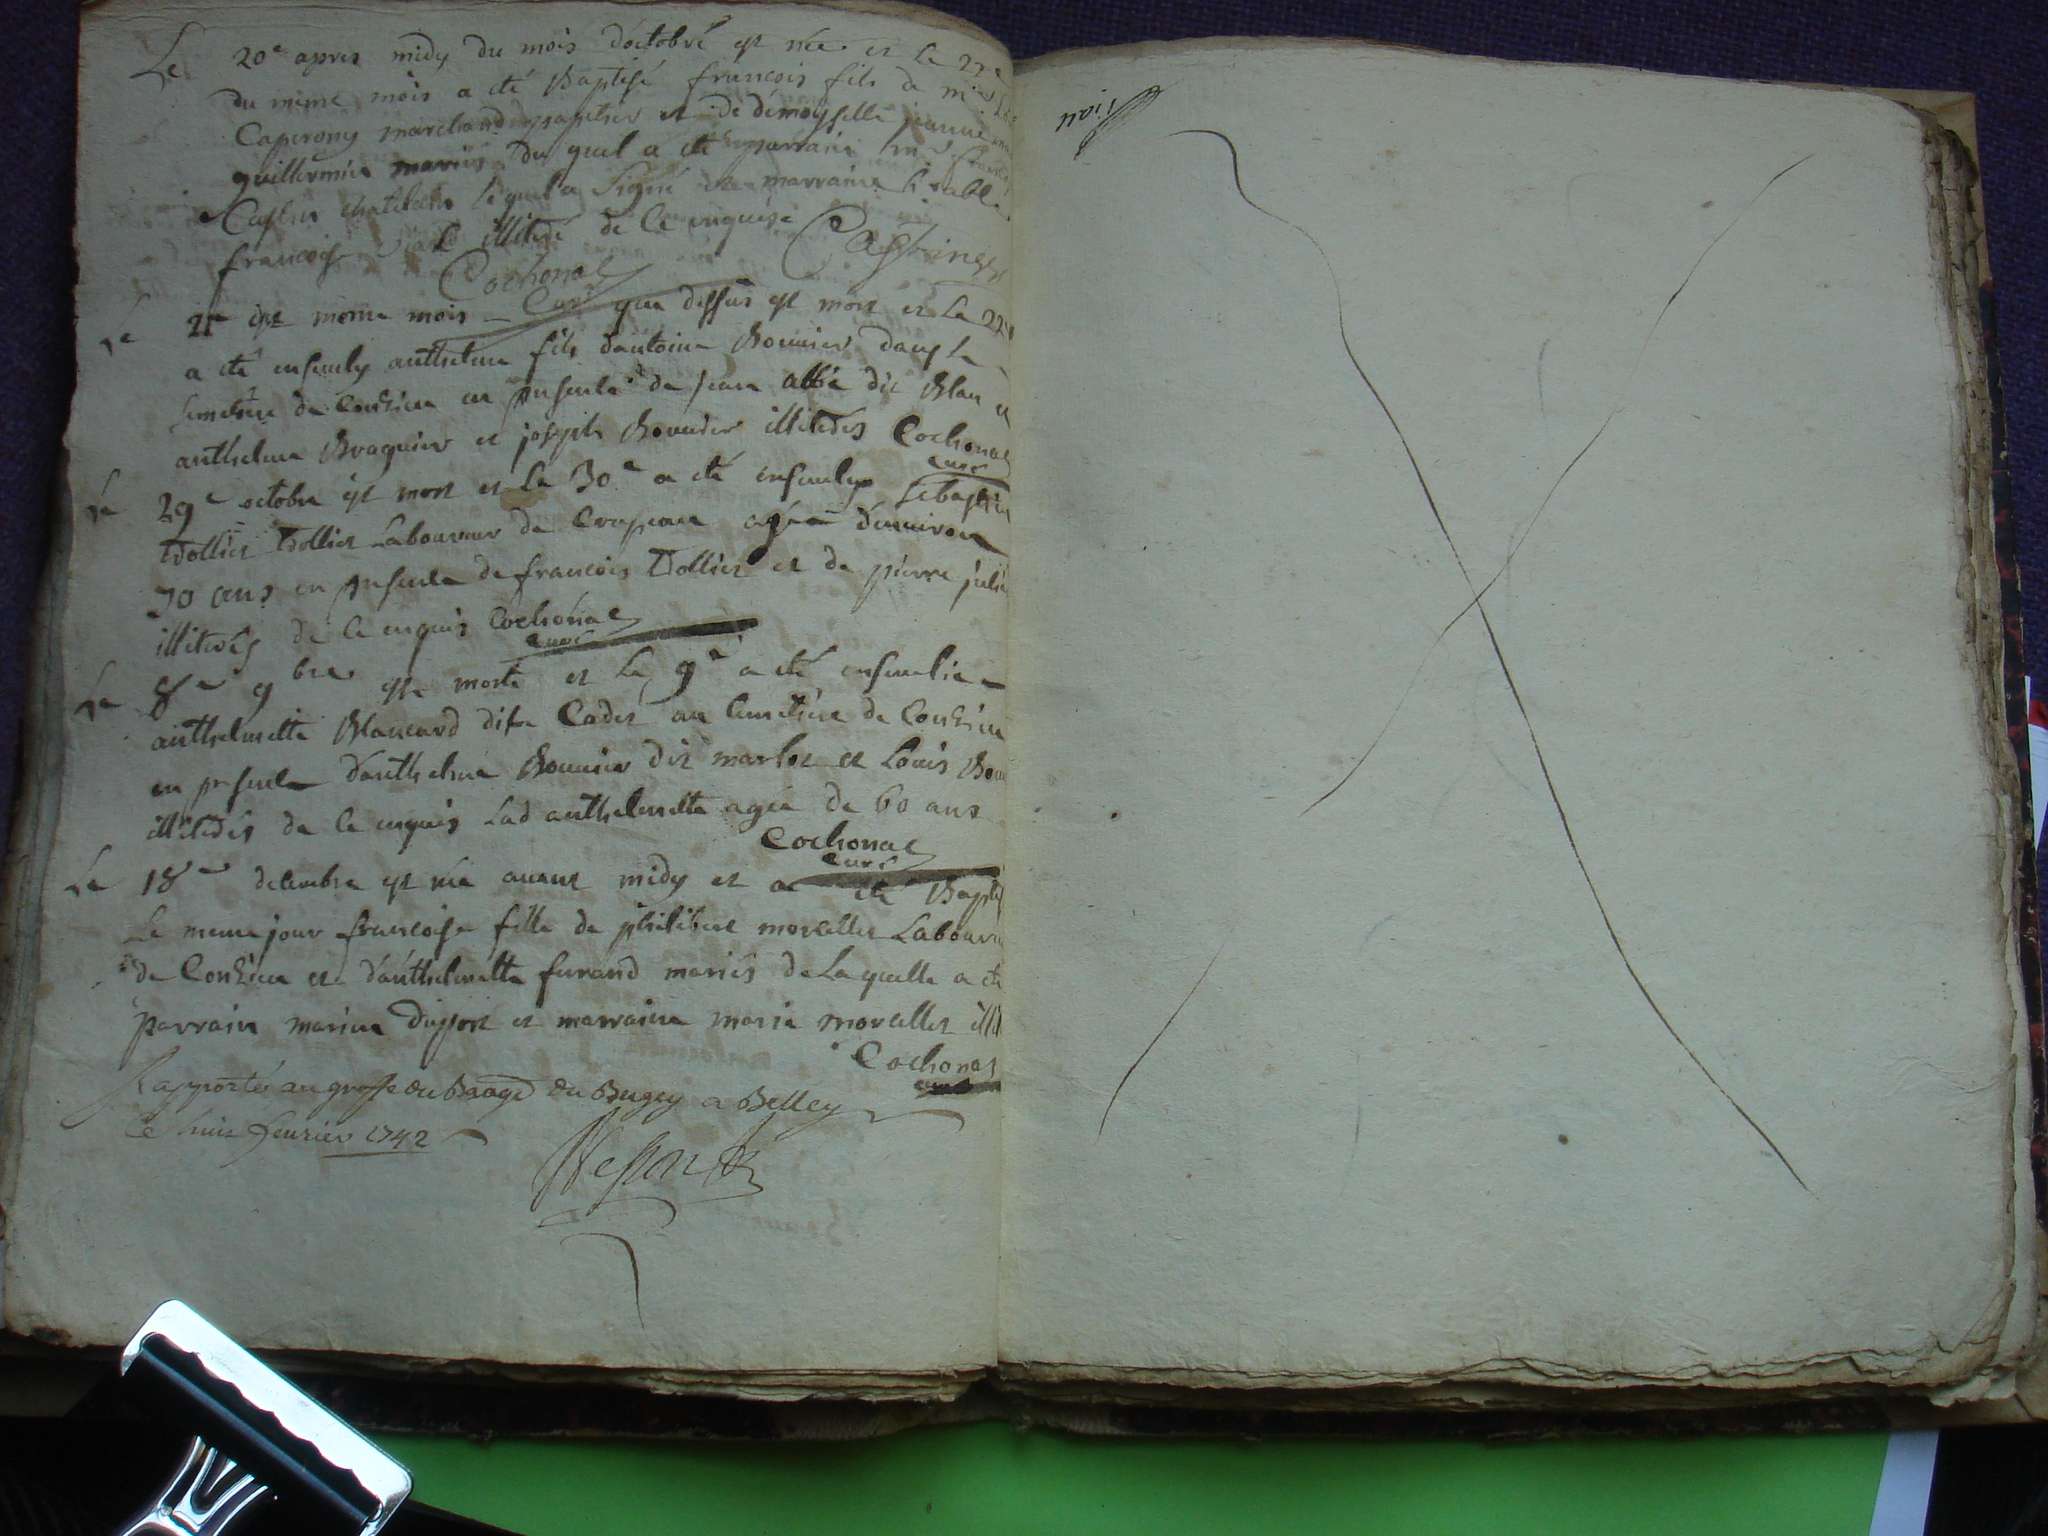 Le 20e apres midy du mois d'octobre est née et le 22e
du meme mois a eté Baptisé francois fils de mr
Caperony marchand papetier et de demoyselle jeanne
guillermin mariés du quel a eté parrain mr
Castin chatelain lequel a signé et marraine
francoise illiteré de ce enquise Castin
Cochonat
Curé
Le 21e du meme mois que dessus est mort et le 22e
a eté enseuely anthelme fils d'antoine Bonnier dans le
Simetiere de Contzieu en presence de jean Abbé dit Blan et
anthelme Braquier et joseph Bonnier illiterés Cochonat
Curé
Le 29e octobre est mort et le 30e a eté enseuely Sebastien
Tdollier Tdollier Laboureur de Crapeau agé d'enuiron
70 ans en presence de francois Tdollier et de pierre
illiterés de ce enquis Cochonat
Curé
Le 8e 9bre est morte et le 9e a eté enseuelie
anthelmette Blancard dite Cadet au Cimetiere de Contzieu
en presence d'anthelme Bonnier dit marlot et Louis Bon
illiterés de ce enquis Lad anthelmette agée de 60 ans
Cochonat
Curé
Le 18e decembre est née auant midy et a eté Bapt
Le meme jour francoise fille de philibert morellet Labour
de Contzieu et d'anthelmette furand mariés de Laquelle a eté
parrain marin Duport et marraine marie morellet illi
Cochonat
Curé
Rapporté au greffe du Baage du Bugey a Belley
Ce huit feurier 1742